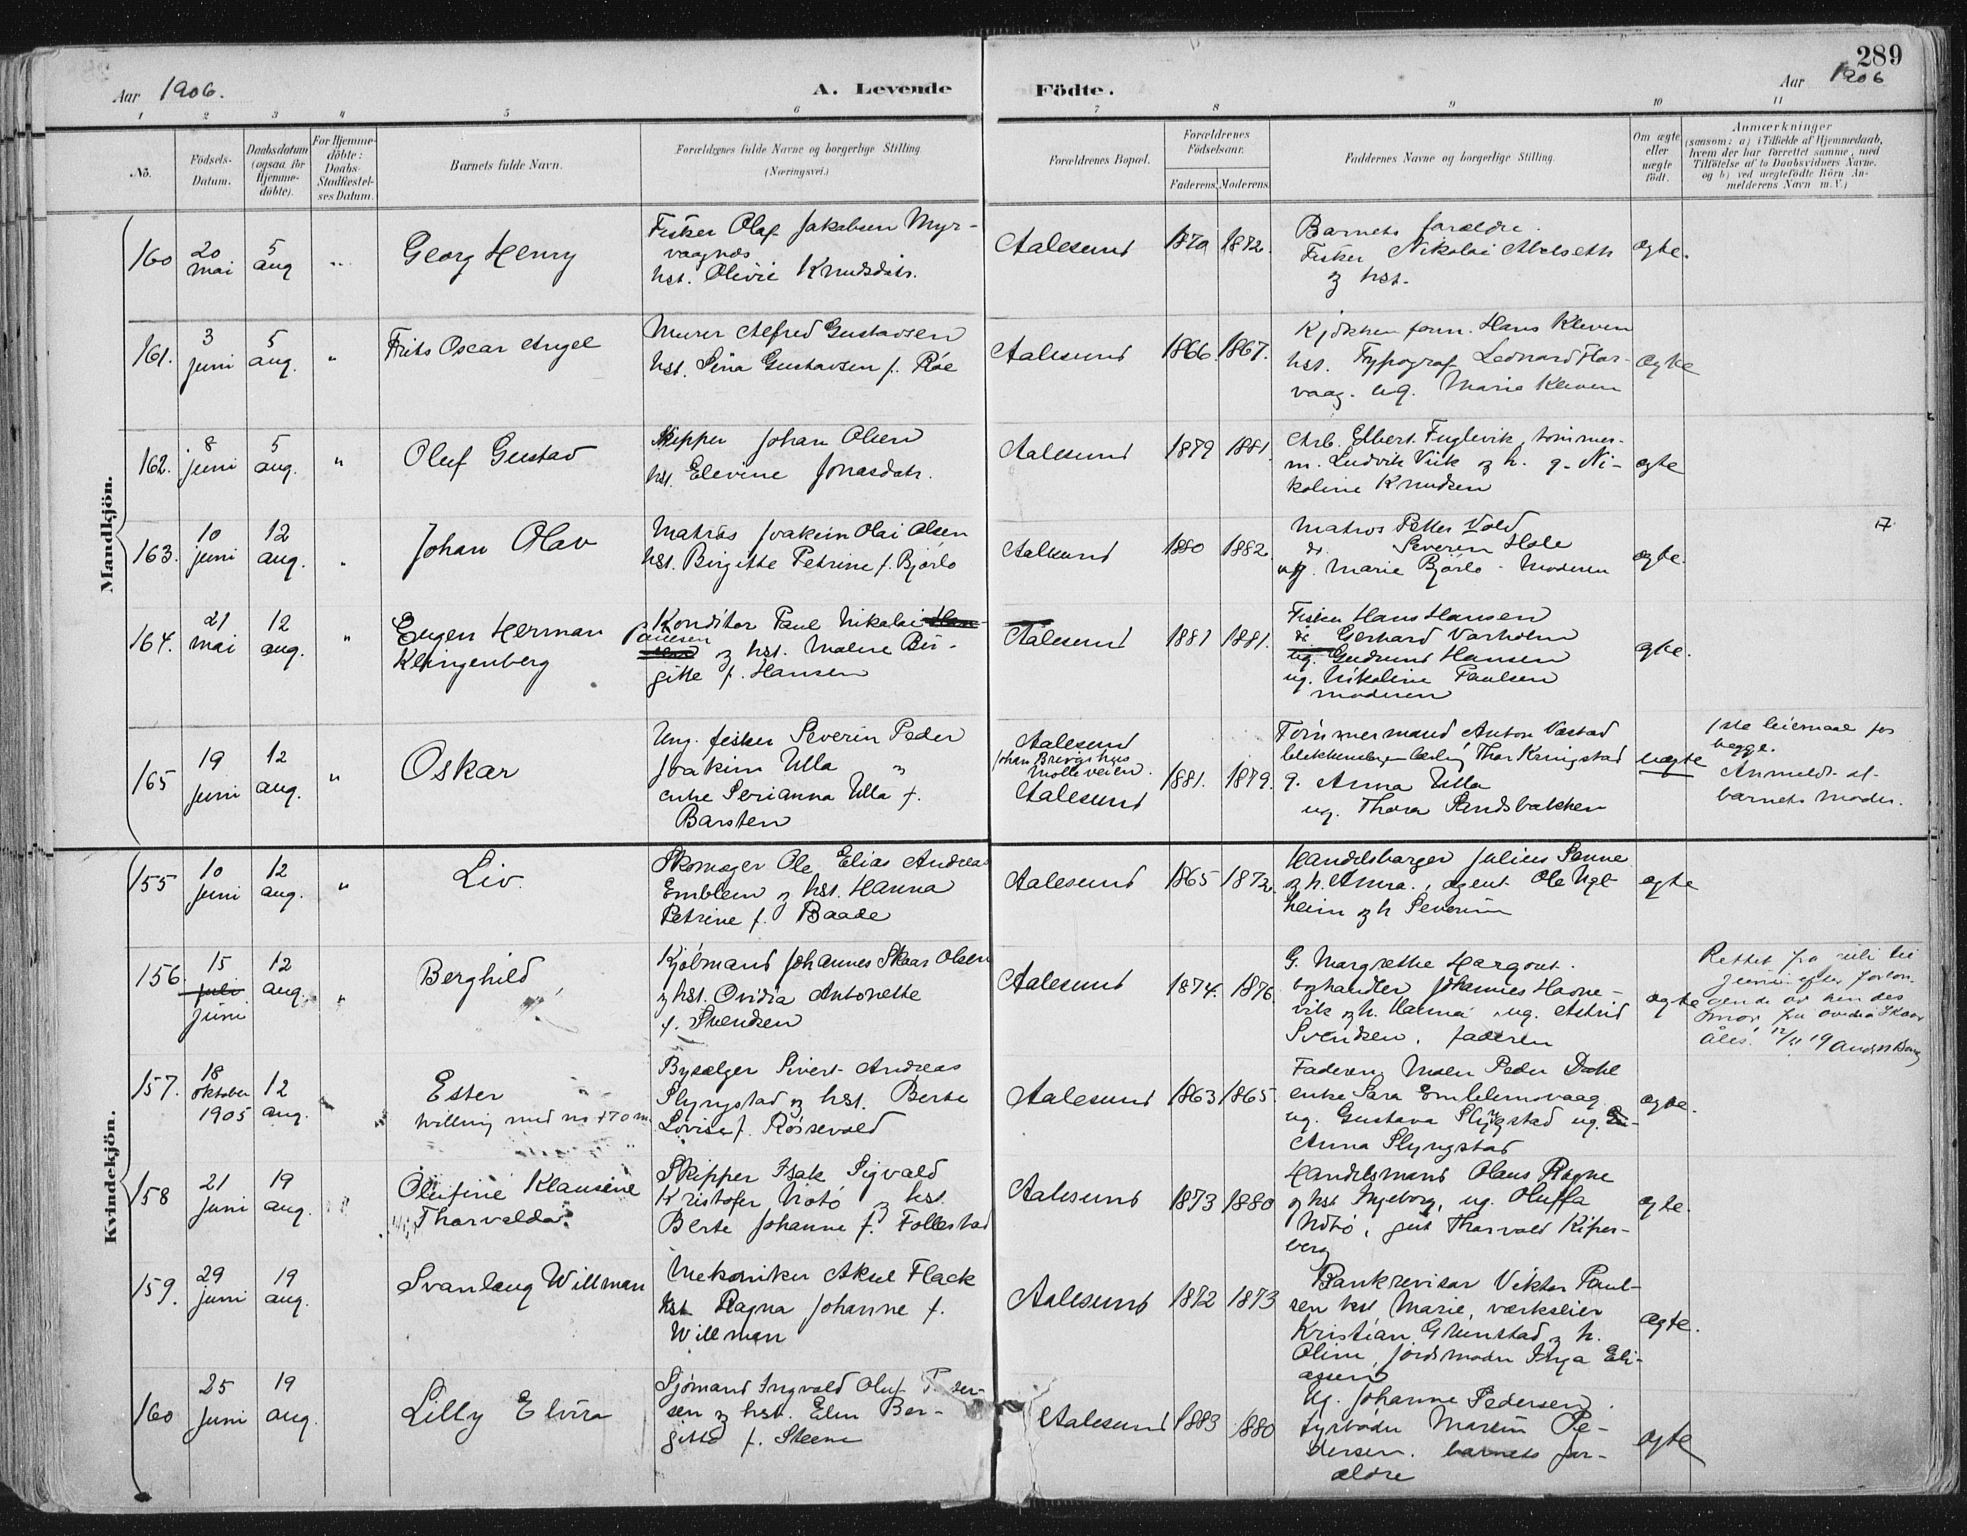 289
Aar 1906.
A. Levende
Födte.
Aar 1906
1 2 3 4 5 6 7 8 9 10 11
No.
Födsels-
Datum.
Daabsdatum
(ogsaa for
Hjemme-
döbte).
For Hjemme-
döbte:
Daabs-
Stadfæstel-
ses Datum.
Barnets fulde Navn.
Forældrenes fulde Navne og borgerlige Stilling.
(Næringsvei.)
Forældrenes Bopæl.
Forældrenes
Födselsaar.
Faderens. Moderens.
Faddernes Navne og borgerlige Stilling.
Om ægte
eller
uægte
födt.
Anmærkninger
(saasom: a) i Tilfælde af Hjemmedaab,
hvem der har forrettet samme, med
Tilföielse af to Daabsvidners Navne,
og b) ved uægtefödte Börn An-
melderens Navn m. V.)
Mandkjön.
160
20
mai
5
aug
Georg Henry
Fisker Olaf Jakobsen Myr-
vaagnes
hst. Olivie Knudsdatr.
Aalesund
1870 1872.
Barnets forældre.
Fisker Nikolai Abelseth
og hst.
ægte.
161.
3
juni
5
aug.
"
Frits Oscar Angel
Murer Alfred Gustavsen
hst. Sina Gustavsen f. Röe
Aalesund
1866. 1867.
Kjökken form. Hans Kleven
hst. Typograf Leonard Flor-
vaag. ug. Marie Kleven
ægte
162.
8
juni
5
aug.
"
Oluf Gustav
Skipper Johan Olsen
hst. Elevine Jonasdatr.
Aalesund
1879 1881.
Arb. Elbert Fuglevik, tömmer-
m. Ludvik Viik og h. g. Ni-
koline Knudsen
ægte
163.
10
juni
12
aug.
Johan Olav
Matros Joakim Olai Olsen
hst. Birgitte Petrine f. Björlo
Aalesund
1880 1882.
Matros Petter Vold
do. Severin Hole
ug. Marie Björlo - Moderen
ægte.
164.
21
mai
12
aug.
"
Eugen Herman
Klingenberg
Konditor Paul Nikolai
Paulsen
og hst. Malene Bir-
gitte f. Hansen
Aalesund
1881 1881.
Fisker Hans Hansen
do Gerhard Varholm
ug. Gudrund Hansen
ug. Nikoline Paulsen
moderen
ægte.
165
19
juni
12
aug.
"
Oskar
Ung. fisker Severin Peder
Joakim Ulla
enke Perianna Ulla f.
Barsten
Aalesund
Molleveien.
Aalesund
1881. 1879.
Tömmermand Anton Vastad
Thor Kringstad
g. Anna Ulla
ug. Thora Sandsbakken
uægte
1ste leiermaal for
begge.
Anmeldt af
barnets moder.
Kvindekjön.
155
10
juni
12
aug.
"
Liv.
Skomager Ole Elias Andreas
Emblem og hst. Hanna
Petrine f. Baade
Aalesund
1865 1872.
Handelsborger Julius Sanne
og h. Anna., agent Ole Ugl-
heim og h Severine
ægte
156
15
juli
juni
12
aug.
"
Berghild
Kjöbmand Johannes Skaar Olsen
og hst. Ovidia Antonette
f. Svendsen
Aalesund
1874. 1876.
G. Margrethe Hargout.
boghandler Johannes Havne-
vik og h. Hanna ug. Astrid
Svendsen. faderen
ægte
Rettet fra juli til
juni efter forlan-
gende av hendes
mor fru Ovidia Skaar
Åles. 12/11 19
157.
18
oktober
1905
12
aug.
Ester
tvilling med no 170 m.
Bysælger Sivert Andreas
Slyngstad og hst. Berte
Lovise f. Röisevold
Aalesund
1863 1865.
Faderen, Maler Peder Dahl
enke Sara Emblemsvaag
ug. Gustava Slyngstad ug.
Anna Slyngstad
ægte.
158
21
juni
19
aug.
Olufine Klausine
Thorvalda.
Skipper Isak Sigvald
Kristofer Notö og hst.
Berte Johanne f. Follestad
Aalesund
1873 1880
Handelsmand Olaus Rogne
og hst Ingeborg, ug. Oluffa
Notö, gut Thorvald Kiper-
berg
ægte.
159.
29
juni
19
aug.
Svanlaug Willman
Mekaniker Aksel Flack
hst. Ragna Johanne f.
Willman
Aalesund
1872 1873
Bankrevisor Viktor Paul-
sen hst Marie, værkseier
Kristian Grimstad og h.
Oline, jordmoder Inga Eli-
assen
ægte.
160
25
juni
19
aug.
Lilly Elvira
Sjömand Ingvald Oluf
sen og hst. Elen Ber-
gitte f. Steene
Aalesund
1883 1880
Ug. Johanne Pedersen.
fyrböder Martin Pe-
dersen. barnets for-
ældre
ægte